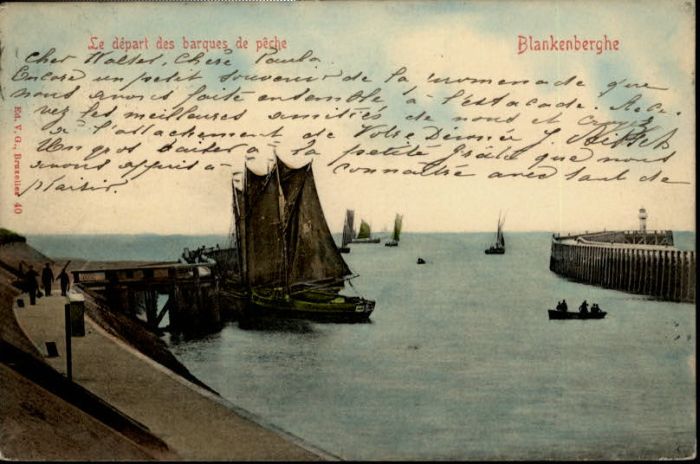 Le départ des barques de pêche
Blankenberghe
Cher Walter, Chère Paula
Encore un petit souvenir de la promenade que
nous avons faite ensemble à l'estacade. Rece-
vez les meilleures amitiés de nous et croyez
à l'attachement de Votre Dévouée J.
Un gros baiser à la petite Gréta que nous
avons appris à connaître avec tant de
plaisir.
Ed. V. G., Bruxelles 40